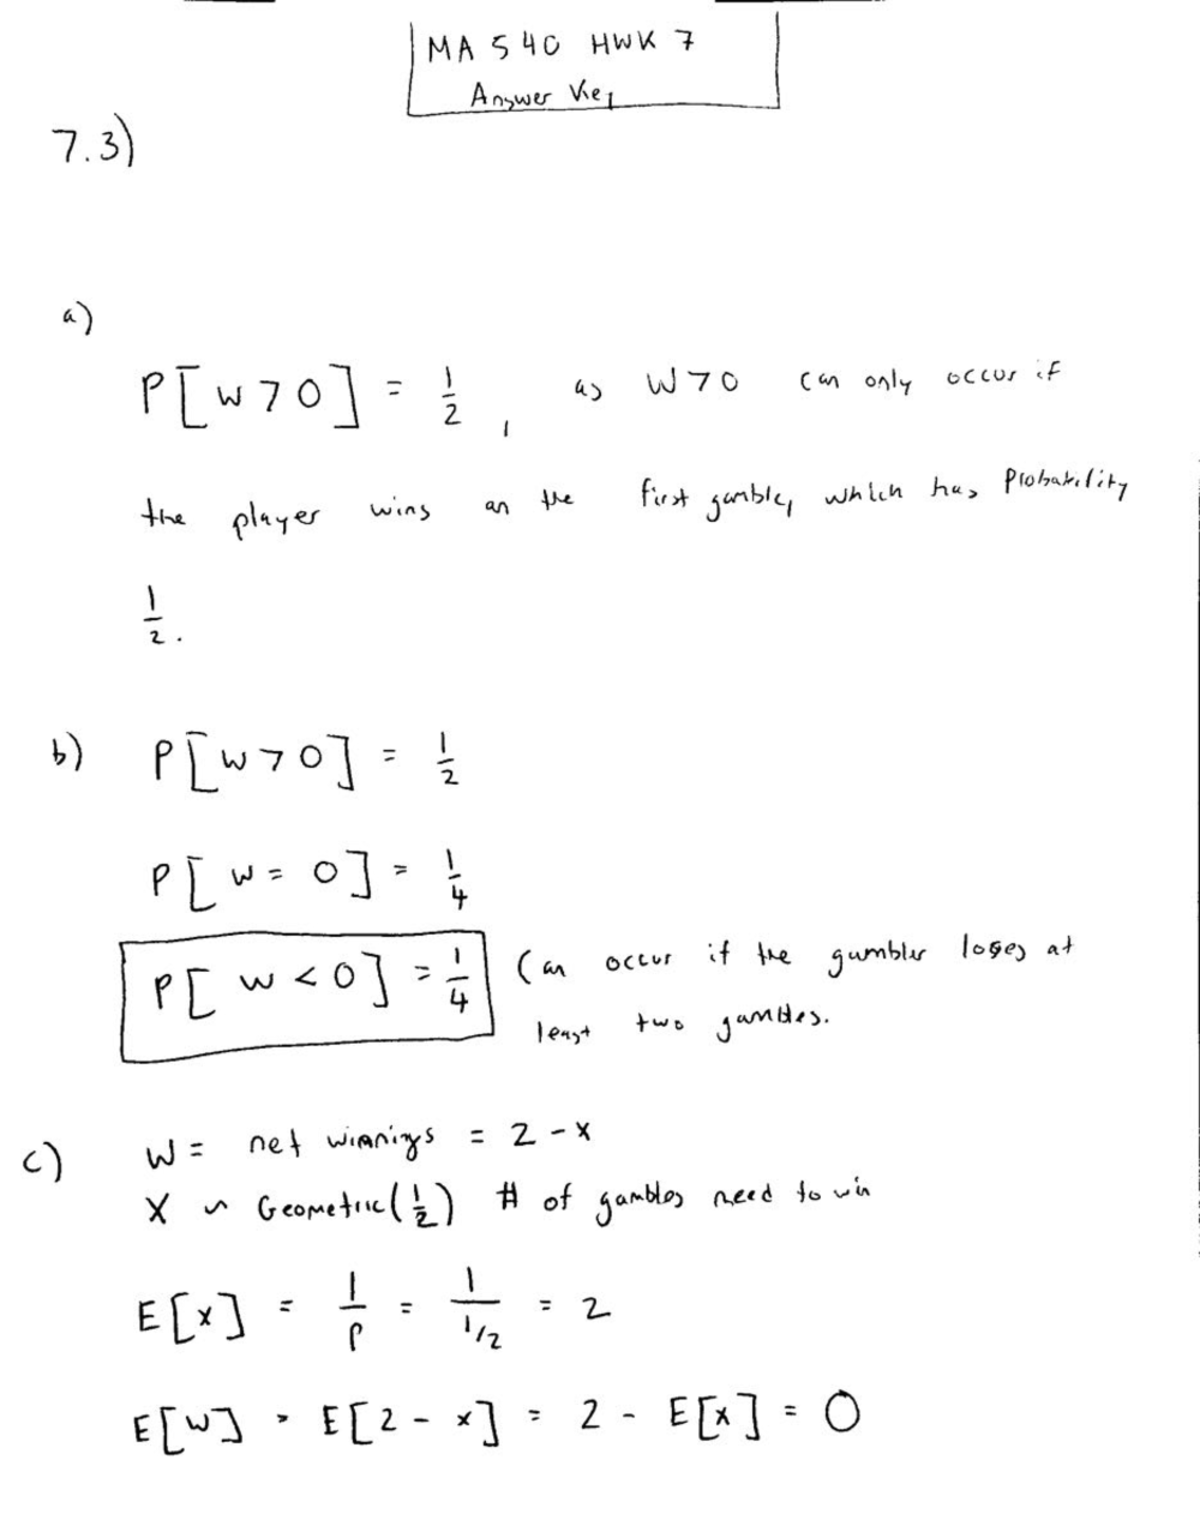 MA 540 HWK 7
Answer Key
7.3)
a)
P[W>0] = 1/2, as W>0 can only occur if
the player wins on the first gamble, which has probability
1/2.
b) P[W>0] = 1/2
P[W=0] = 1/4
P[W<0] = 1/4 Can occur if the gambler loses at
least two gambles.
c) W = net winnings = 2-x
X ~ Geometric(1/2) # of gambles need to win
E[x] = 1/P = 1/1/2 = 2
E[W] = E[2-x] = 2 - E[x] = 0